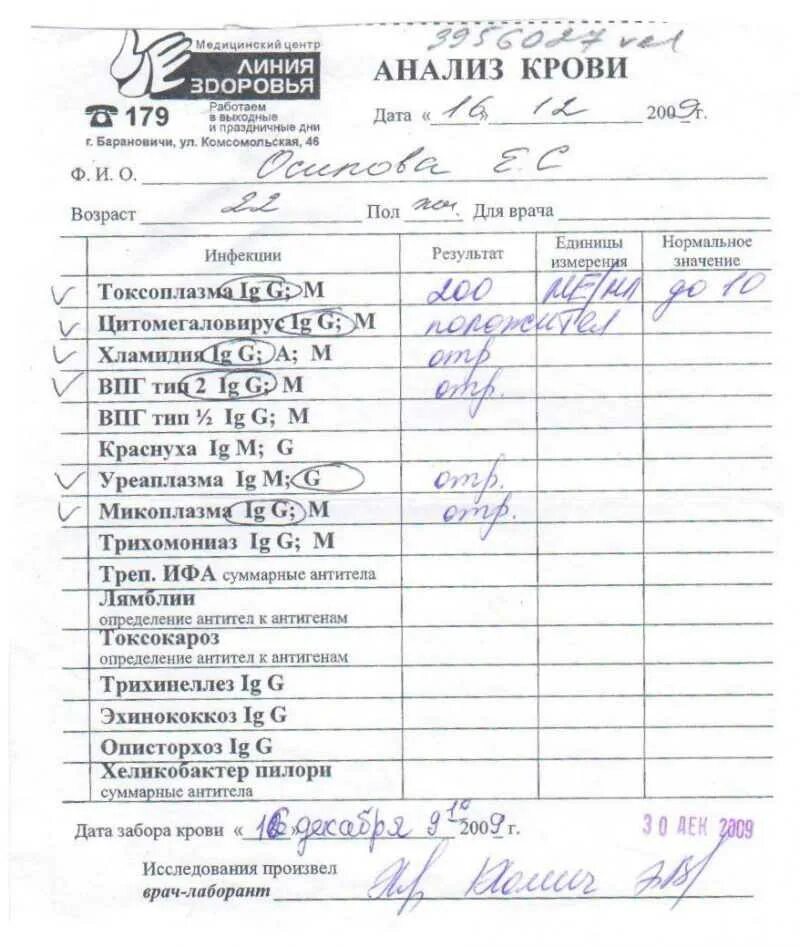 3956027
Медицинский центр
ЛИНИЯ
ЗДОРОВЬЯ
АНАЛИЗ КРОВИ
☎ 179
Работаем
в выходные
и праздничные дни
Дата «16» 12 2009г.
г. Барановичи, ул. Комсомольская, 46
Ф. И. О. Осипова Е.С
Возраст 22 Пол жен. Для врача
Инфекции Результат Единицы измерения Нормальное значение
Токсоплазма Ig G; М 200 МЕ/мл до 10
Цитомегаловирус Ig G; М положител
Хламидия Ig G; А; М отр
ВПГ тип 2 Ig G; М отр.
ВПГ тип ½ Ig G; М
Краснуха Ig M; G
Уреаплазма Ig M; G отр.
Микоплазма Ig G; М отр.
Трихомониаз Ig G; М
Треп. ИФА суммарные антитела
Лямблии
определение антител к антигенам
Токсокароз
определение антител к антигенам
Трихинеллез Ig G
Эхинококкоз Ig G
Описторхоз Ig G
Хеликобактер пилори
суммарные антитела
Дата забора крови «16» декабря 9¹⁰ 2009 г.
30 ДЕК 2009
Исследования произвел
врач-лаборант